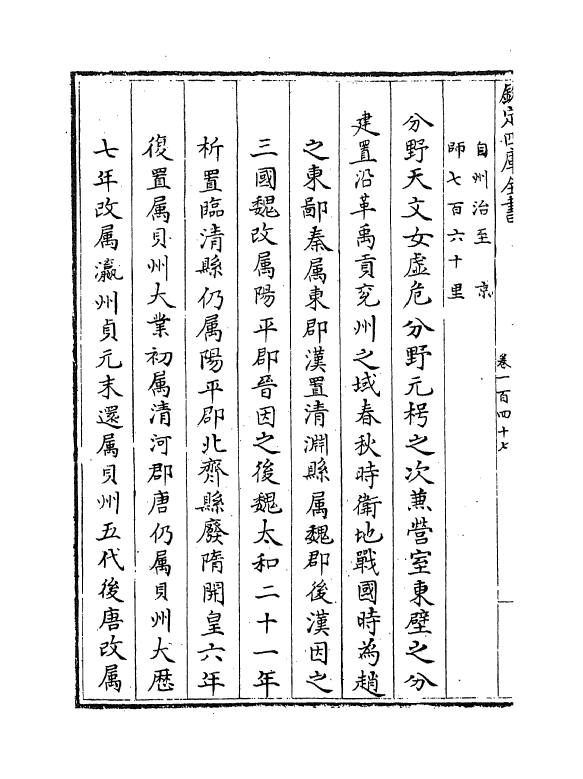 欽定四庫全書
卷一百四十七
自州治至 京
師七百六十里
分野天文女虛危分野元枵之次兼營室東壁之分
建置沿革禹貢兖州之域春秋時衛地戰國時為趙
之東鄙秦属東郡漢置清淵縣属魏郡後漢因之
三國魏改属陽平郡晉因之後魏太和二十一年
析置臨清縣仍属陽平郡北齊縣廢隋開皇六年
復置属貝州大業初属清河郡唐仍属貝州大歴
七年改属瀛州貞元末還属貝州五代後唐改属